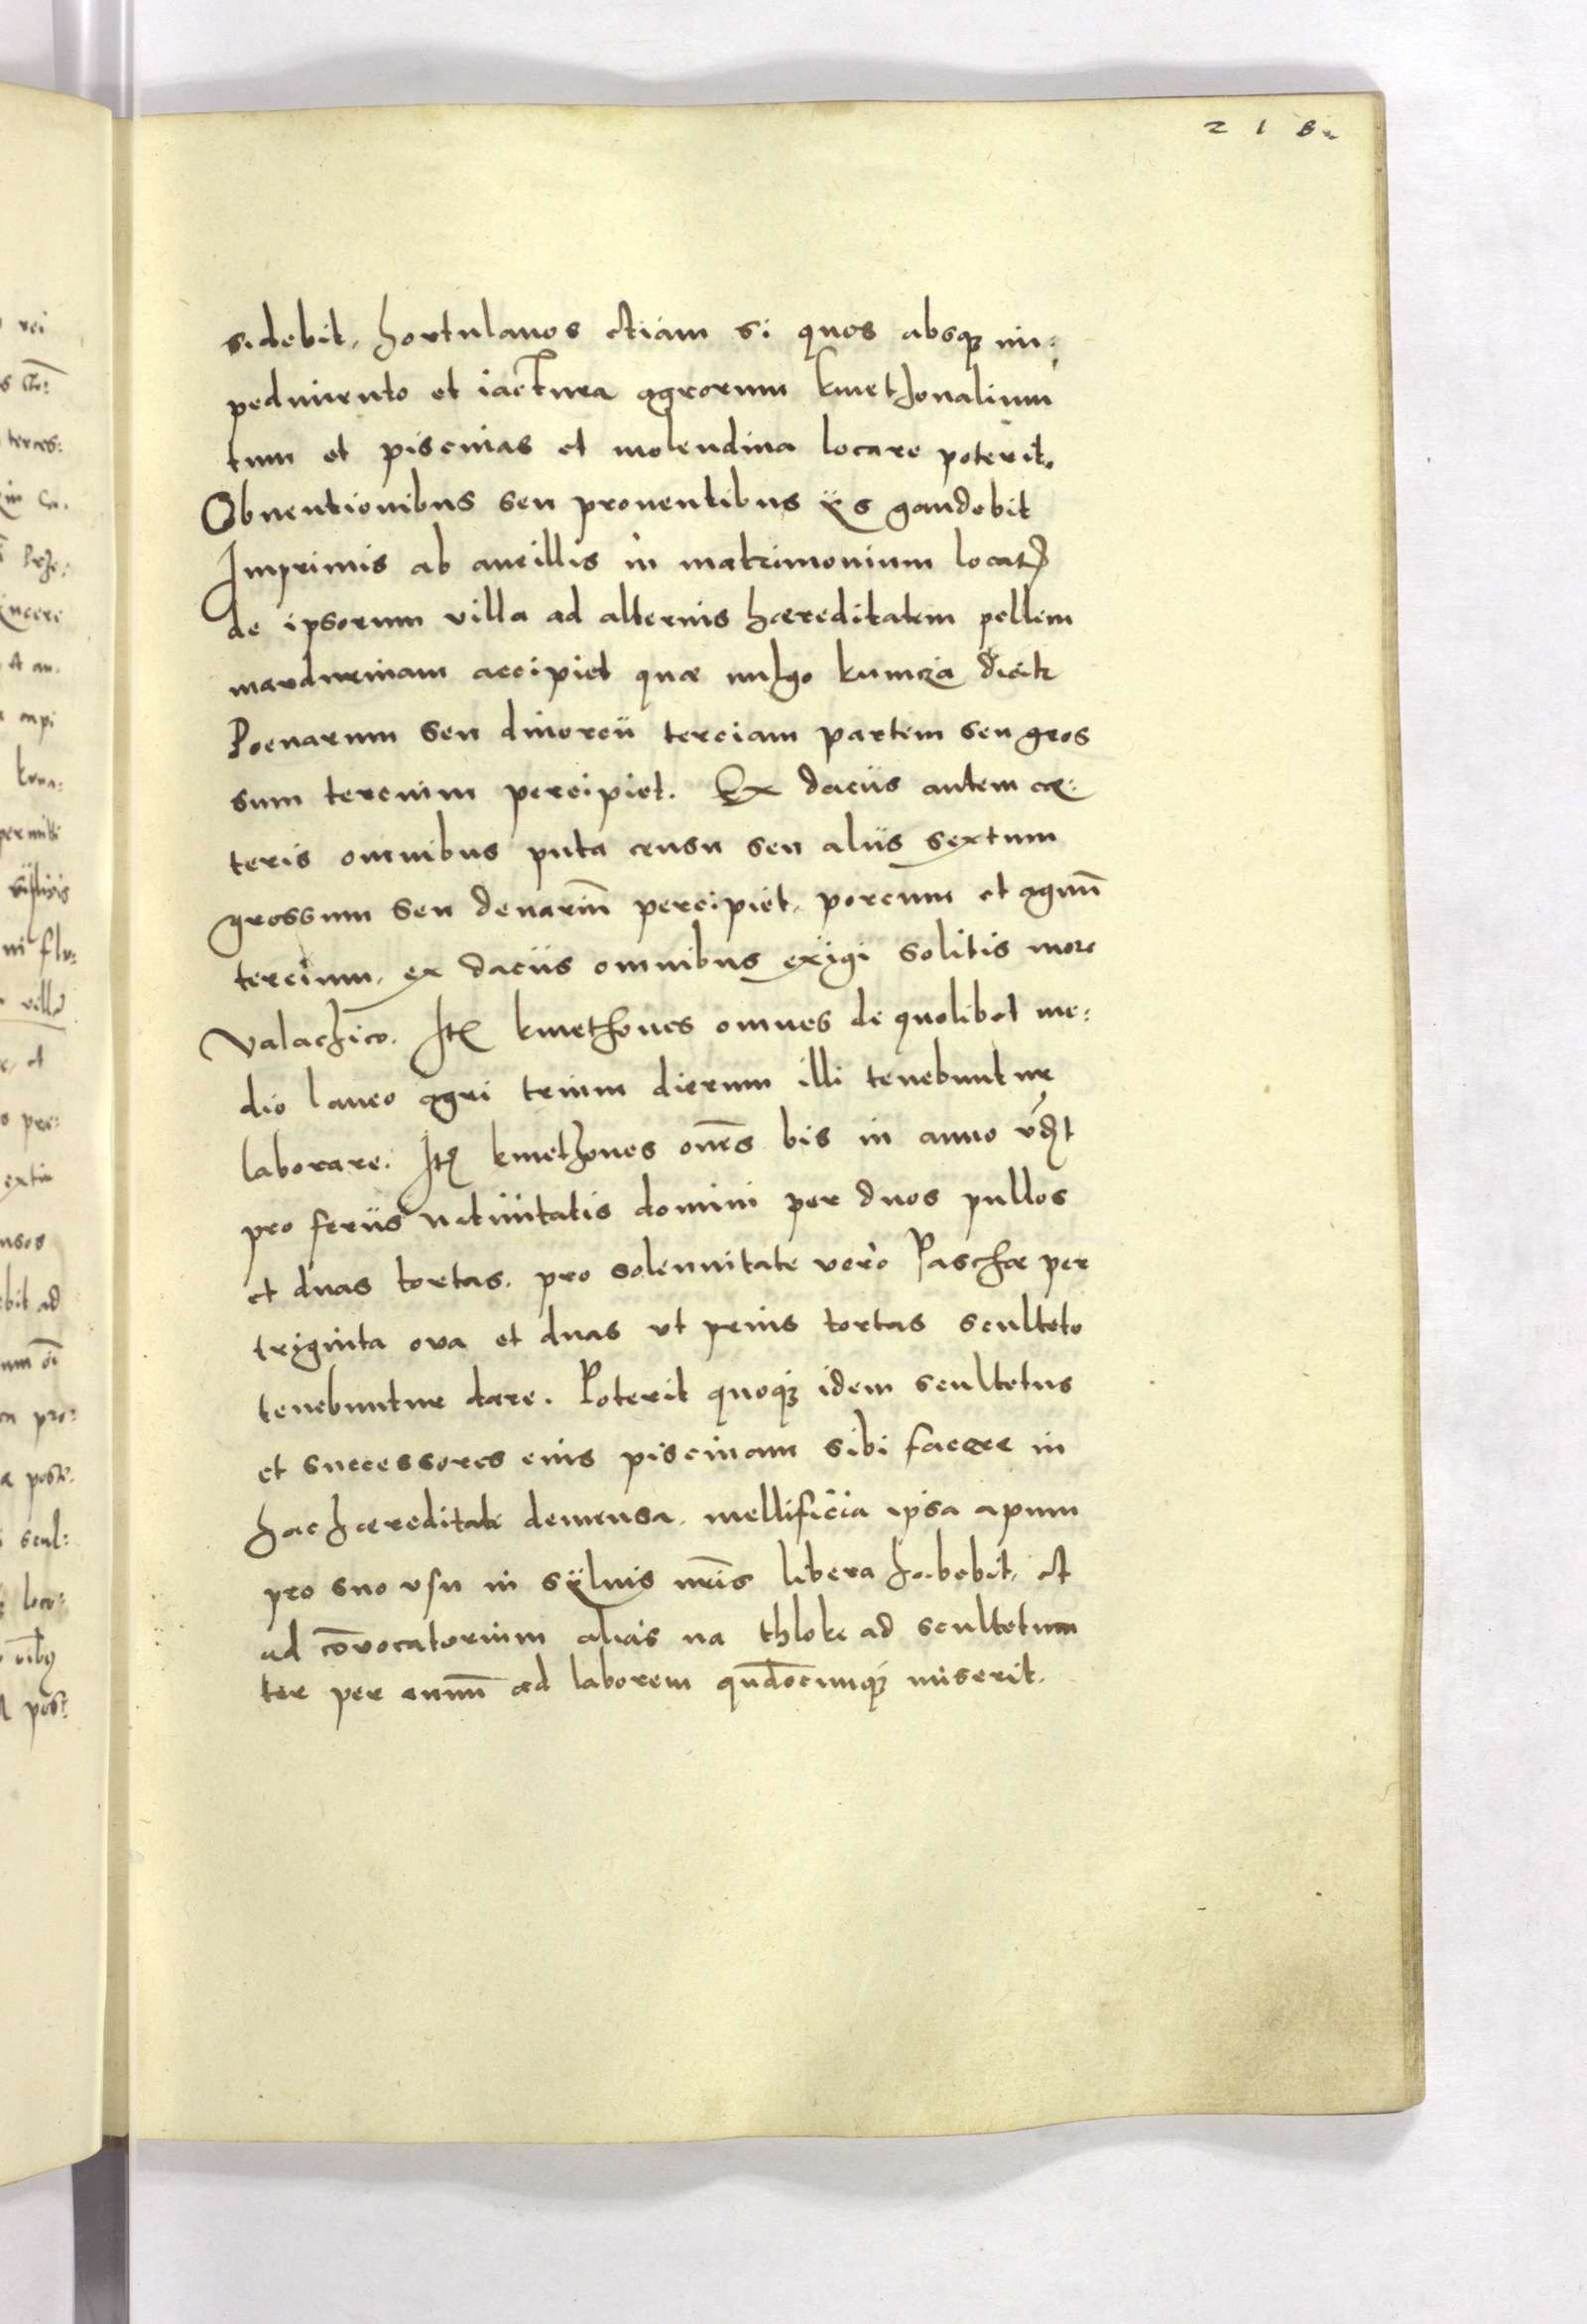 218.
sidebit, hortulanos etiam si quos absq̨ im:
pedimento et iactura agrorum kmethonalium
tum et piscinas et molendina locare poterit.
Obuentionibus seu prouentibus ÿs gaudebit
Imprimis ab ancillis in matrimonium locatis
de ipsorum villa ad alterius hæreditatem pellem
mardurinam accipiet quæ uulgo kuniczia dicit̃
Poenarum seu diuorcii terciam partem seu gros
sum tercium percipiet. Ex daciis autem cæ:
teris omnibus puta censu seu aliis sextum
grossum seu denariũ percipiet, porcum et agnũ
tercium, ex daciis omnibus exigi solitis more
Valachico. Itẽ kmethones omnes de quolibet me:
dio laneo agri trium dierum illi tenebuntur
laborare. Itẽ kmethones om̃es bis in anno vdꝫt
pro feriis natiuitatis domini per duos pullos
et duas tortas, pro solennitate verò Paschæ per
triginta ova et duas vt prius tortas sculteto
tenebuntur dare. Poterit quoqꝫ idem scultetus
et successores eius piscinam sibi facere in
hac hæreditate demensa, mellificia ipsa apum
pro suo vsu in sÿluis nr̃is libera habebit, et
ad cõvocatorium alias na thloke ad scultetum
ter per annũ ad laborem quãdocunqꝫ miserit.